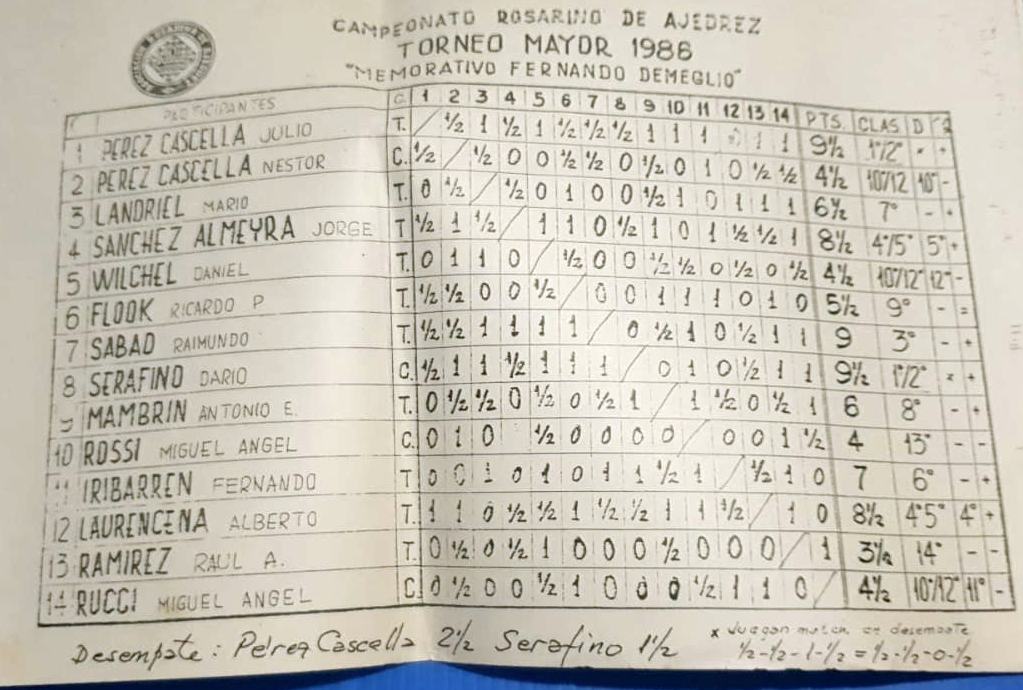 CAMPEONATO ROSARINO DE AJEDREZ
TORNEO MAYOR 1986
"MEMORATIVO FERNANDO DEMEGLIO"
PARTICIPANTES C. 1 2 3 4 5 6 7 8 9 10 11 12 13 14 PTS. CLAS D
1 PEREZ CASCELLA JULIO T. / ½ 1 ½ 1 ½ ½ ½ 1 1 1 0 1 1 9½ 1°/2° × +
2 PEREZ CASCELLA NESTOR C. ½ / ½ 0 0 ½ ½ 0 ½ 0 1 0 ½ ½ 4½ 10°/12 10° -
3 LANDRIEL MARIO T. 0 ½ / ½ 0 1 0 0 ½ 1 0 1 1 1 6½ 7° - +
4 SANCHEZ ALMEYRA JORGE T ½ 1 ½ / 1 1 0 ½ 1 0 1 ½ ½ 1 8½ 4°/5° 5° +
5 WILCHEL DANIEL T. 0 1 1 0 / ½ 0 0 ½ ½ 0 ½ 0 ½ 4½ 10°/12° 12° -
6 FLOOK RICARDO P T. ½ ½ 0 0 ½ / 0 0 1 1 1 0 1 0 5½ 9° - =
7 SABAD RAIMUNDO T. ½ ½ 1 1 1 1 / 0 ½ 1 0 ½ 1 1 9 3° - +
8 SERAFINO DARIO C. ½ 1 1 ½ 1 1 1 / 0 1 0 ½ 1 1 9½ 1°/2° × +
9 MAMBRIN ANTONIO E. T. 0 ½ ½ 0 ½ 0 ½ 1 / 1 ½ 0 ½ 1 6 8° - +
10 ROSSI MIGUEL ANGEL C. 0 1 0 ½ 0 0 0 0 / 0 0 1 ½ 4 13° - -
11 IRIBARREN FERNANDO T 0 0 1 0 1 0 1 1 ½ 1 / ½ 1 0 7 6° - +
12 LAURENCENA ALBERTO T. 1 1 0 ½ ½ 1 ½ ½ 1 1 ½ / 1 0 8½ 4°5° 4° +
13 RAMIREZ RAUL A. T. 0 ½ 0 ½ 1 0 0 0 ½ 0 0 0 / 1 3½ 14° - -
14 RUCCI MIGUEL ANGEL C. 0 ½ 0 0 ½ 1 0 0 0 ½ 1 1 0 / 4½ 10°/12° 11° -
Desempate: Pérez Cascella 2½ Serafino 1½
× Juegan match de desempate
½-½-1-½ = ½-½-0-½